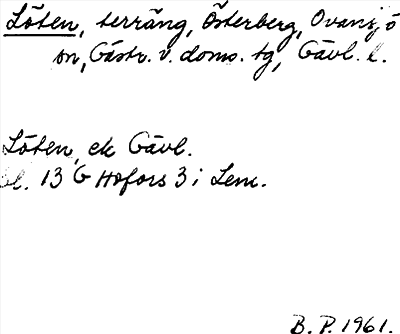 Löten, terräng, Österberg, Ovansjö
sn, Gästr. v. doms. tg, Gävl. l.
Löten, ek Gävl.
bl. 13 G Hofors 3 i Lem.
B. P. 1961.